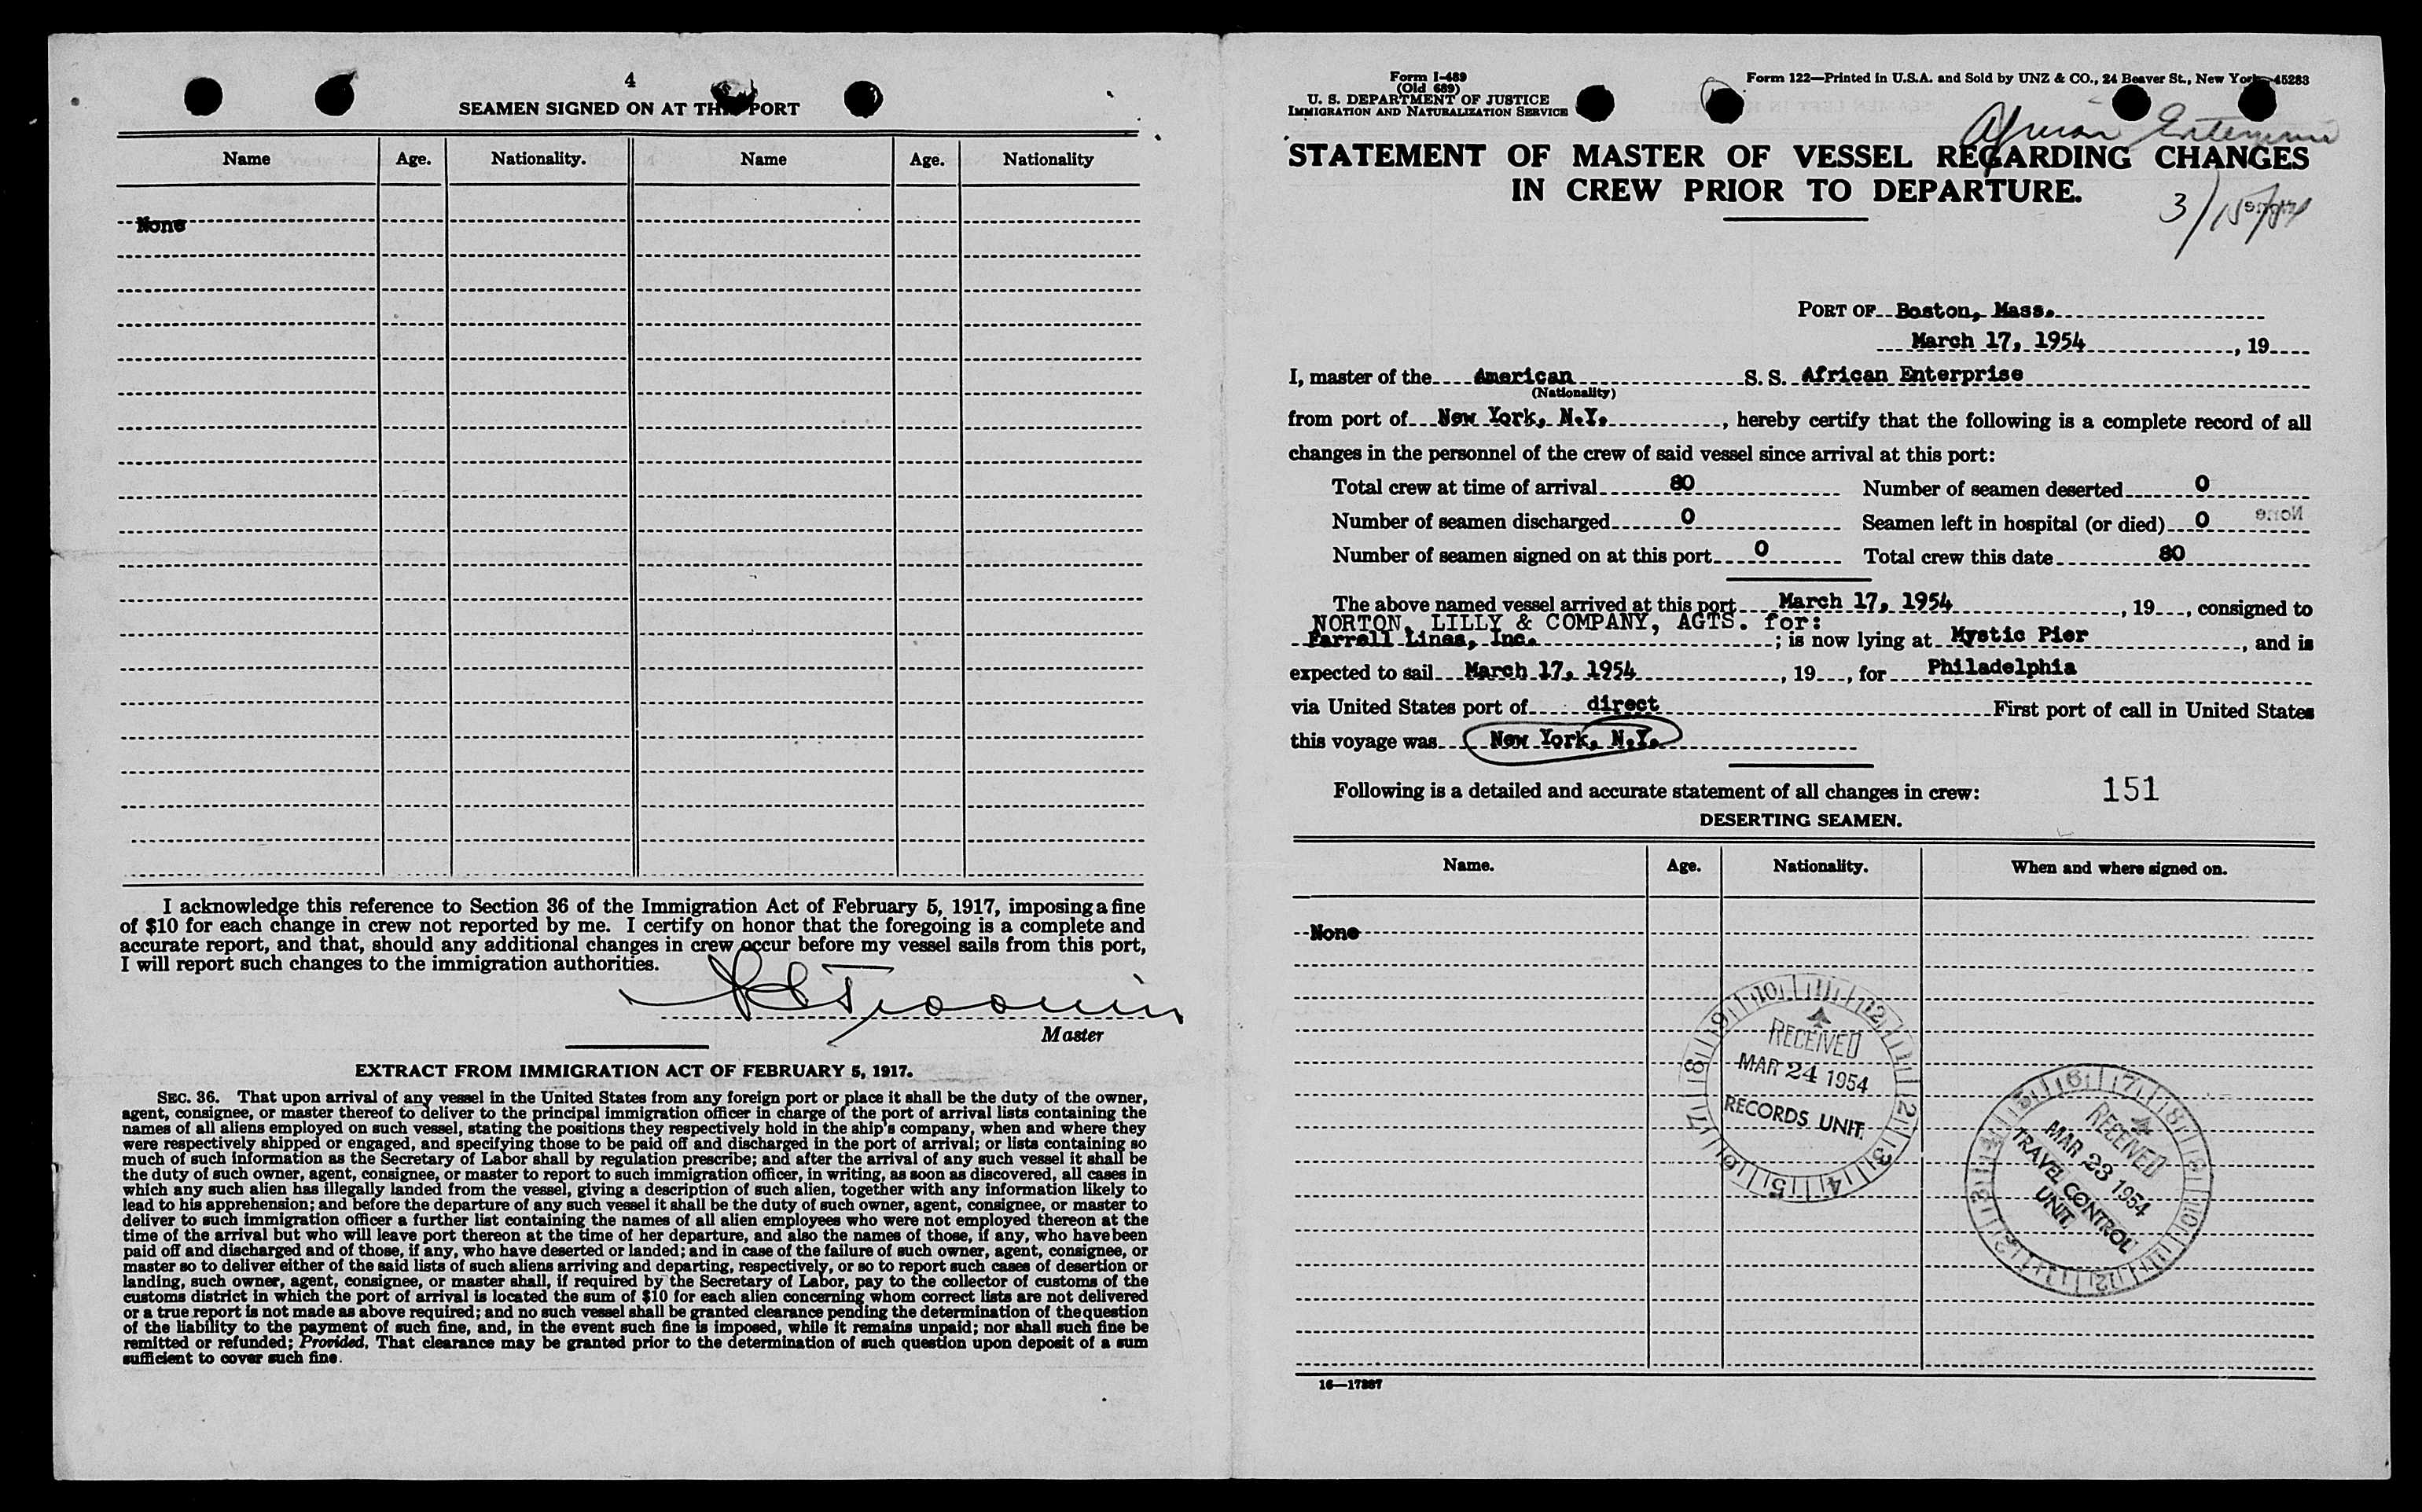 4
SEAMEN SIGNED ON AT THIS PORT
Name Age. Nationality. Name Age. Nationality
None
I acknowledge this reference to Section 36 of the Immigration Act of February 5, 1917, imposing a fine
of $10 for each change in crew not reported by me. I certify on honor that the foregoing is a complete and
accurate report, and that, should any additional changes in crew occur before my vessel sails from this port,
I will report such changes to the immigration authorities.
Master
EXTRACT FROM IMMIGRATION ACT OF FEBRUARY 5, 1917.
SEC. 36. That upon arrival of any vessel in the United States from any foreign port or place it shall be the duty of the owner,
agent, consignee, or master thereof to deliver to the principal immigration officer in charge of the port of arrival lists containing the
names of all aliens employed on such vessel, stating the positions they respectively hold in the ship's company, when and where they
were respectively shipped or engaged, and specifying those to be paid off and discharged in the port of arrival; or lists containing so
much of such information as the Secretary of Labor shall by regulation prescribe; and after the arrival of any such vessel it shall be
the duty of such owner, agent, consignee, or master to report to such immigration officer, in writing, as soon as discovered, all cases in
which any such alien has illegally landed from the vessel, giving a description of such alien, together with any information likely to
lead to his apprehension; and before the departure of any such vessel it shall be the duty of such owner, agent, consignee, or master to
deliver to such immigration officer a further list containing the names of all alien employees who were not employed thereon at the
time of the arrival but who will leave port thereon at the time of her departure, and also the names of those, if any, who have been
paid off and discharged and of those, if any, who have deserted or landed; and in case of the failure of such owner, agent, consignee, or
master so to deliver either of the said lists of such aliens arriving and departing, respectively, or so to report such cases of desertion or
landing, such owner, agent, consignee, or master shall, if required by the Secretary of Labor, pay to the collector of customs of the
customs district in which the port of arrival is located the sum of $10 for each alien concerning whom correct lists are not delivered
or a true report is not made as above required; and no such vessel shall be granted clearance pending the determination of the question
of the liability to the payment of such fine, and, in the event such fine is imposed, while it remains unpaid; nor shall such fine be
remitted or refunded; Provided, That clearance may be granted prior to the determination of such question upon deposit of a sum
sufficient to cover such fine.
Form I-489
(Old 689)
U. S. DEPARTMENT OF JUSTICE
IMMIGRATION AND NATURALIZATION SERVICE
Form 122—Printed in U.S.A. and Sold by UNZ & CO., 24 Beaver St., New York—45283
African Enterprise
STATEMENT OF MASTER OF VESSEL REGARDING CHANGES
IN CREW PRIOR TO DEPARTURE.
3/15/54
PORT OF Boston, Mass.
March 17, 1954, 19
I, master of the American S. S. African Enterprise
(Nationality)
from port of New York, N.Y., hereby certify that the following is a complete record of all
changes in the personnel of the crew of said vessel since arrival at this port:
Total crew at time of arrival 80 Number of seamen deserted 0
Number of seamen discharged 0 Seamen left in hospital (or died) 0
Number of seamen signed on at this port 0 Total crew this date 80
The above named vessel arrived at this port March 17, 1954, 19, consigned to
NORTON, LILLY & COMPANY, AGTS. for:
Farrell Lines, Inc.; is now lying at Mystic Pier, and is
expected to sail March 17, 1954, 19, for Philadelphia
via United States port of direct First port of call in United States
this voyage was New York, N.Y.
Following is a detailed and accurate statement of all changes in crew: 151
DESERTING SEAMEN.
Name. Age. Nationality. When and where signed on.
None
RECEIVED
MAR 24 1954
RECORDS UNIT.
RECEIVED
MAR 23 1954
TRAVEL CONTROL
UNIT.
16—17887